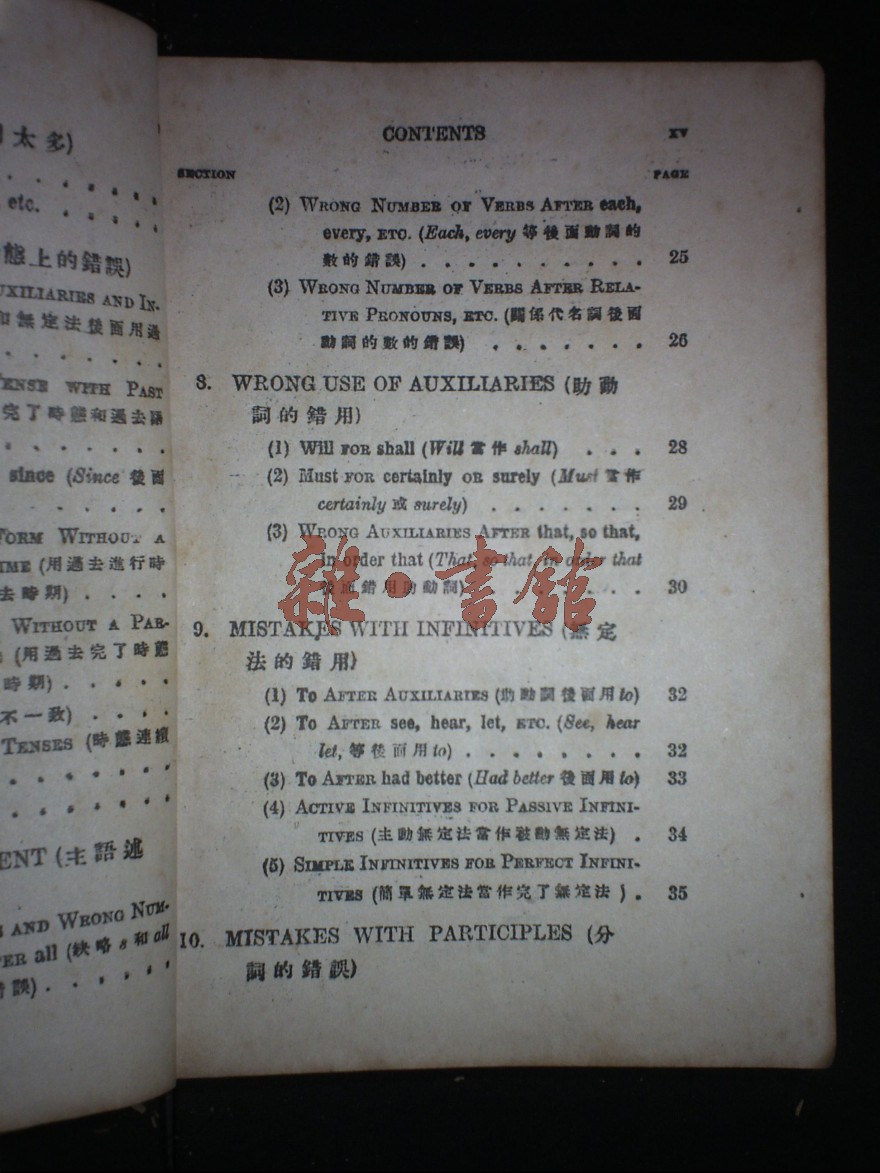 用太多)
etc.
態上的錯誤)
UXILIARIES AND IN-
和無定法後面用過
ENSE WITH PAST
完了時態和過去語
since (Since 後面
FORM WITHOUT A
IME (用過去進行時
去時期)
WITHOUT A PAR-
(用過去完了時態
時期)
不一致)
TENSES (時態連續
ENT (主語述
S AND WRONG NUM-
TER all (缺略 s 和 all
錯誤)
CONTENTS xv
SECTION PAGE
(2) WRONG NUMBER OF VERBS AFTER each,
every, ETC. (Each, every 等後面動詞的
數的錯誤) . . . . . . . . . . 25
(3) WRONG NUMBER OF VERBS AFTER RELA-
TIVE PRONOUNS, ETC. (關係代名詞後面
動詞的數的錯誤) . . . . . . . 26
8. WRONG USE OF AUXILIARIES (助動
詞的錯用)
(1) Will FOR shall (Will 當作 shall) . . . 28
(2) Must FOR certainly OR surely (Must 當作
certainly 或 surely) . . . . . . . 29
(3) WRONG AUXILIARIES AFTER that, so that,
in order that (That, so that, in order that
後面錯用助動詞) . . . . . . . 30
雜·書館
9. MISTAKES WITH INFINITIVES (無定
法的錯用)
(1) To AFTER AUXILIARIES (助動詞後面用to) 32
(2) To AFTER see, hear, let, ETC. (See, hear
let, 等後面用to) . . . . . . . . 32
(3) To AFTER had better (Had better 後面用to) 33
(4) ACTIVE INFINITIVES FOR PASSIVE INFINI-
TIVES (主動無定法當作被動無定法) . 34
(5) SIMPLE INFINITIVES FOR PERFECT INFINI-
TIVES (簡單無定法當作完了無定法 ) . 35
10. MISTAKES WITH PARTICIPLES (分
詞的錯誤)